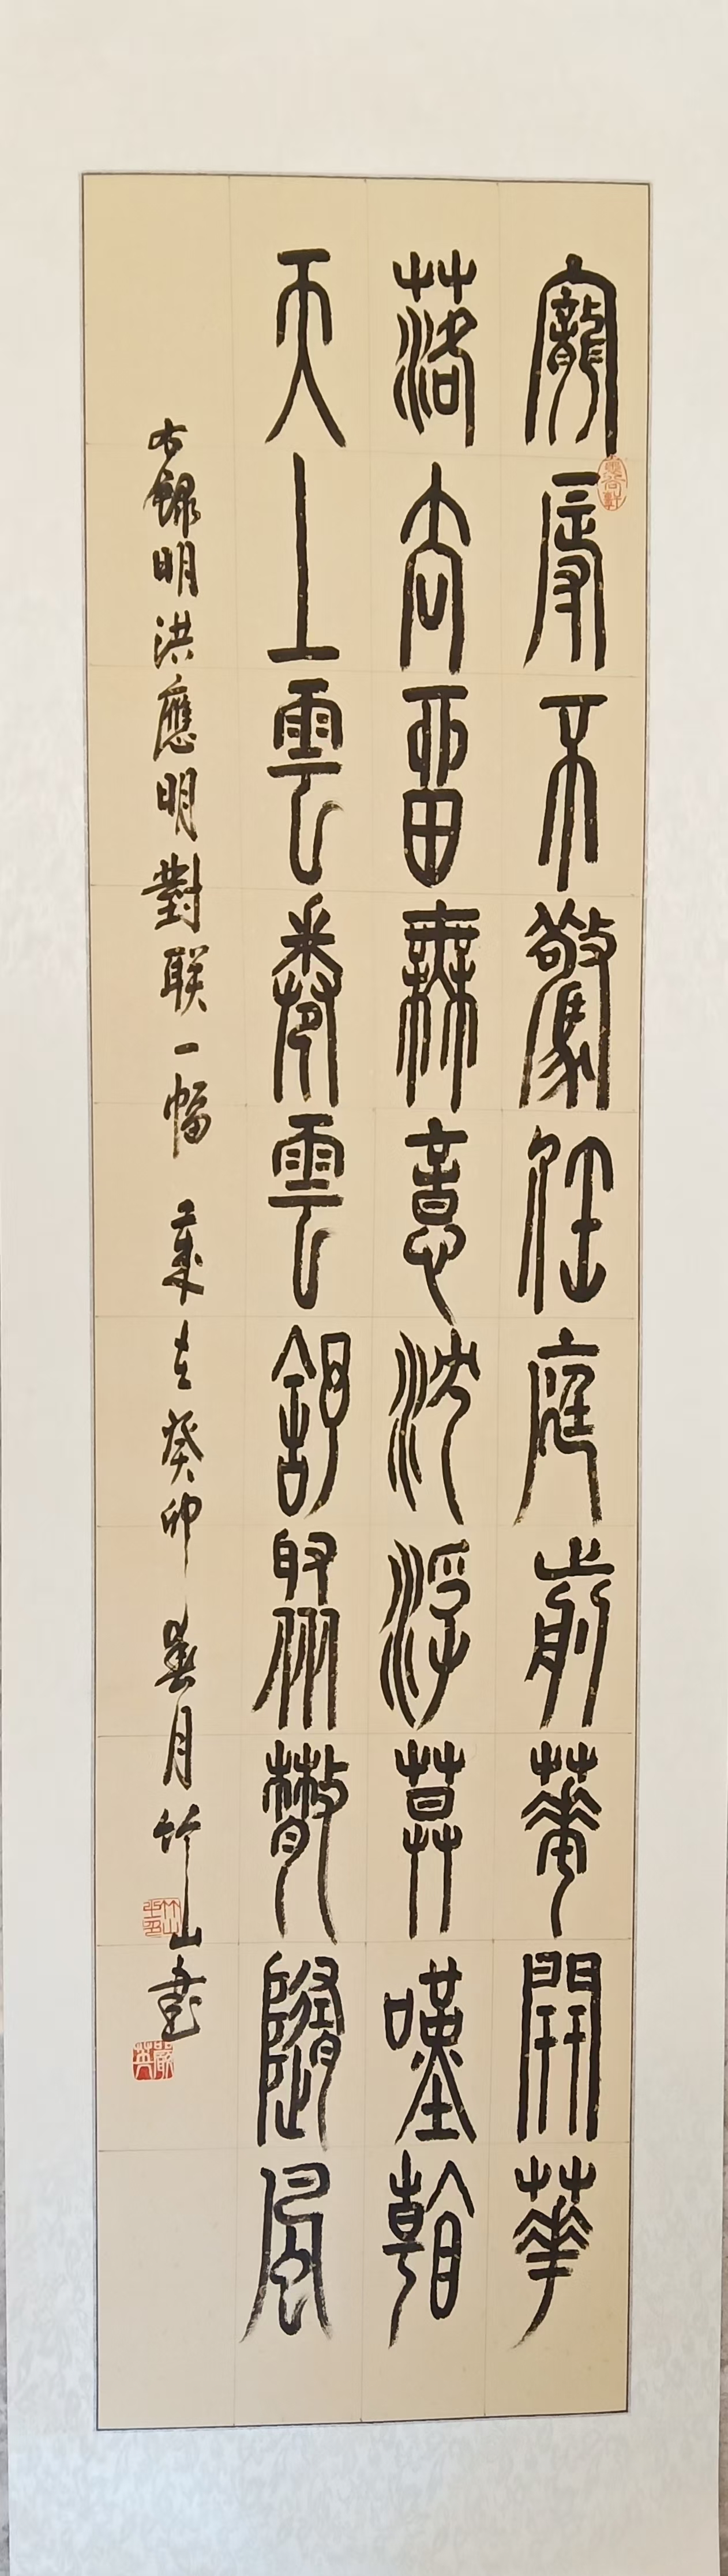 寵辱不驚任庭前華開華
落去留無意沈浮莫嘆看
天上雲卷雲舒聚散隨風
右錄明洪應明對联一幅 歲在癸卯春月竹山書